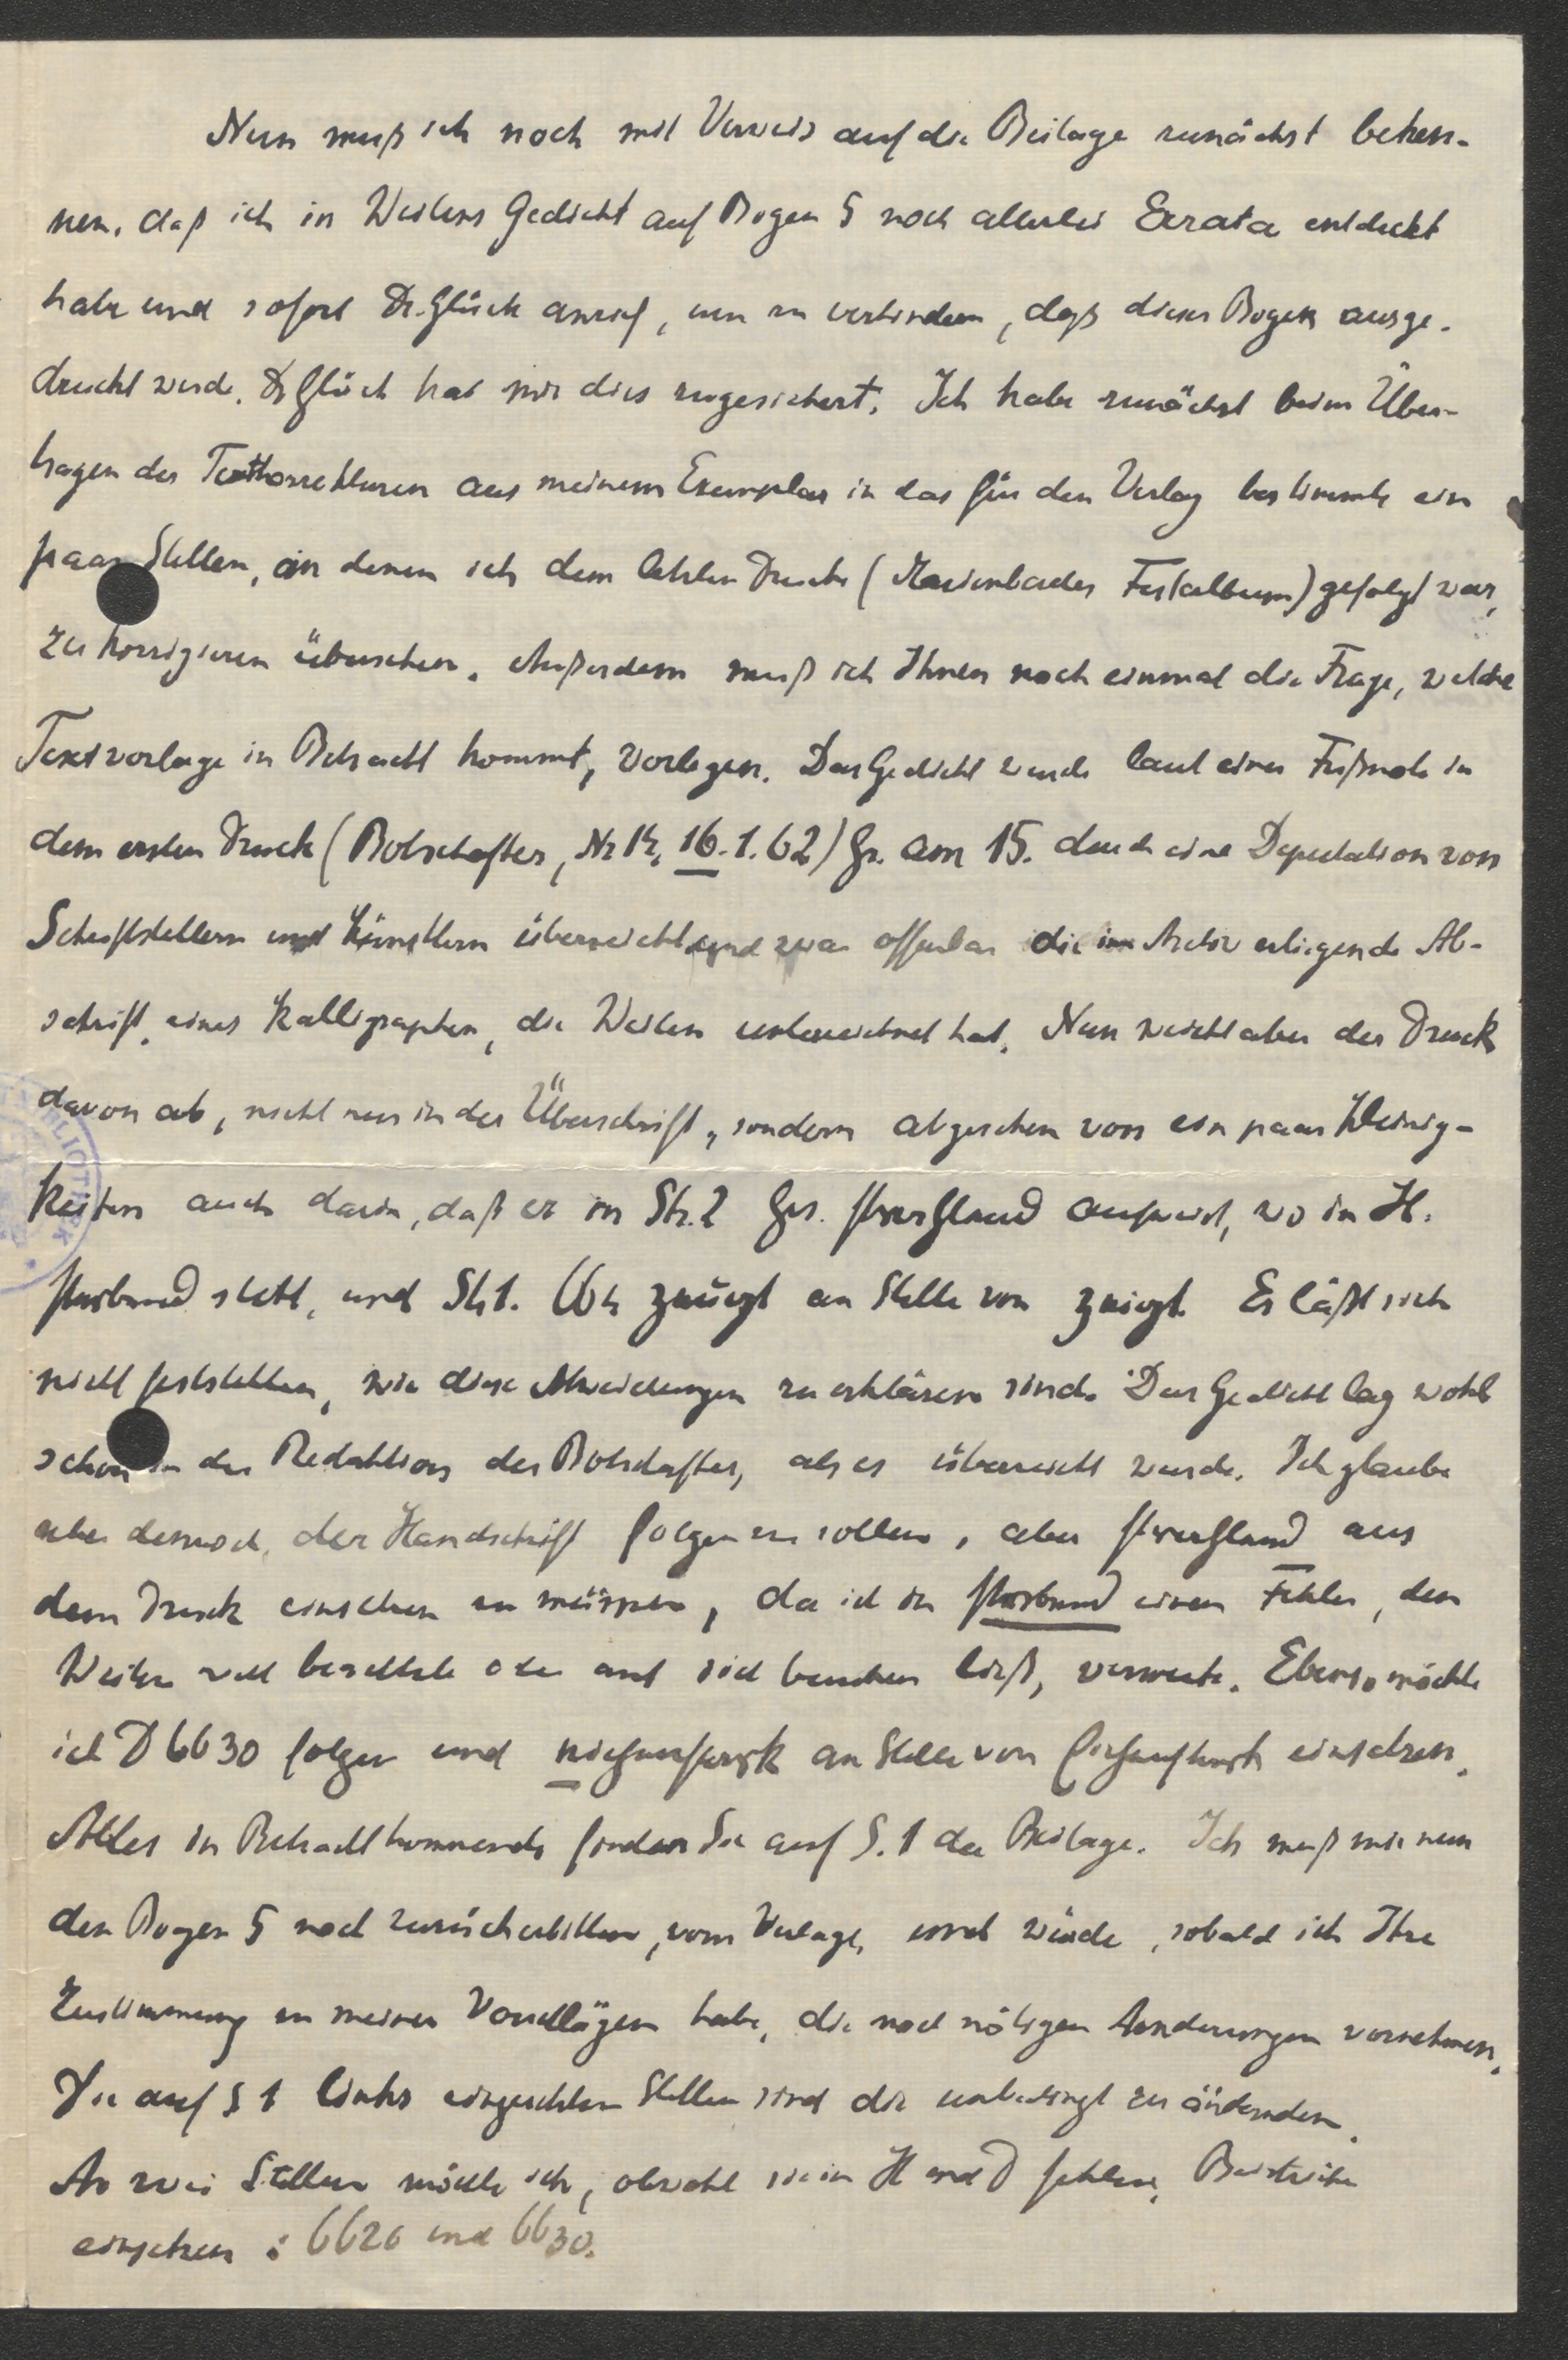 Nun muß ich noch mit Verweis auf die Beilage zunächst beken-
nen, daß ich in Weilens Gedicht auf Bogen 5 noch allerlei Errata entdeckt
habe und sofort Dr. Glück anrief, um zu verhindern, daß dieser Bogen ausge-
druckt werde. Dr Glück hat mir dies zugesichert. Ich habe zunächst beim Über-
tragen der Textkorrekturen aus meinem Exemplar in das für den Verlag bestimmte ein
paar Stellen, an denen ich dem letzten Drucke (Marienbader Festalbum) gefolgt war,
zu korrigieren übersehen. Außerdem muß ich Ihnen noch einmal die Frage, welche
Textvorlage in Betracht kommt, vorlegen. Das Gedicht wurde laut einer Fußnote in
dem ersten Druck (Botschafter, Nr 14, 16.1.62) Gr. am 15. durch eine Deputation von
Schriftstellern und Künstlern überreicht und zwar offenbar die im Archiv erliegende Ab-
schrift eines Kalligraphen, die Weilen unterzeichnet hat. Nun weicht aber der Druck
davon ab, nicht nur in der Überschrift, sondern abgesehen von ein paar Kleinig-
keiten auch darin, daß er in Str. 2 aufweist, wo in H.
steht, und Str. 1. zeugt an Stelle von zeigt. Es läßt sich
nicht feststellen, wie diese Abweichungen zu erklären sind. Das Gedicht lag wohl
schon in der Redaktion des Botschafter, als es überreicht wurde. Ich glaube
aber dennoch, der Handschrift folgen zu sollen, aber aus
dem Druck einsetzen zu müssen, da ich in einen Fehler, den
Weilen nicht beachtete oder auf sich beruhen ließ, vermute. Ebenso möchte
ich D 6630 folgen und an Stelle von einsetzen.
Alles in Betracht kommende finden Sie auf S. 1 der Beilage. Ich muß mir nun
den Bogen 5 noch zurückerbitten, vom Verlage, und würde, sobald ich Ihre
Zustimmung zu meinen Vorschlägen habe, die noch nötigen Aenderungen vornehmen.
Die auf S 1 links eingerückten Stellen sind die unbedingt zu ändernden.
An zwei Stellen möchte ich, obwohl sie in H und D fehlen, Beistriche
einsetzen: 6626 und 6630.